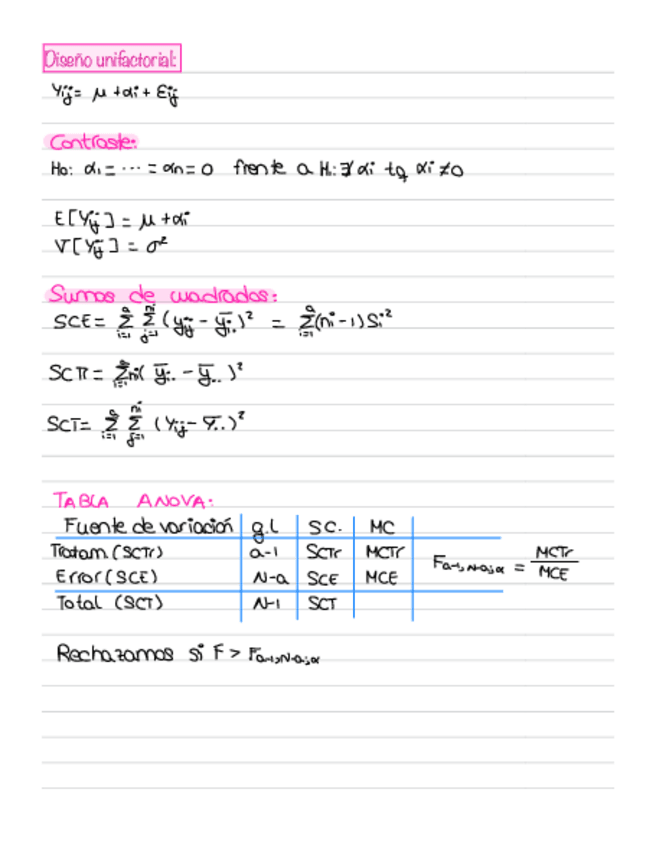 Diseño unifactorial:
Yij = μ + αi + Eij
Contraste:
H0: α1 = ... = αn = 0 frente a H1: ∃ αi tq αi ≠ 0
E[Yij] = μ + αi
V[Yij] = σ²
Sumas de cuadrados:
SCE = Σ(i=1, a) Σ(j=1, ni) (yij - ȳi.)² = Σ(i=1, a) (ni - 1) Si²
SCTr = Σ(i=1, a) ni (ȳi. - ȳ..)²
SCT = Σ(i=1, a) Σ(j=1, ni) (Yij - Ȳ..)²
TABLA ANOVA:
Fuente de variación g.l SC. MC
Tratam (SCTr) a-1 SCTr MCTr
Error (SCE) N-a SCE MCE
Total (SCT) N-1 SCT
Fa-1,N-a;α = MCTr / MCE
Rechazamos si F > Fa-1,N-a;α